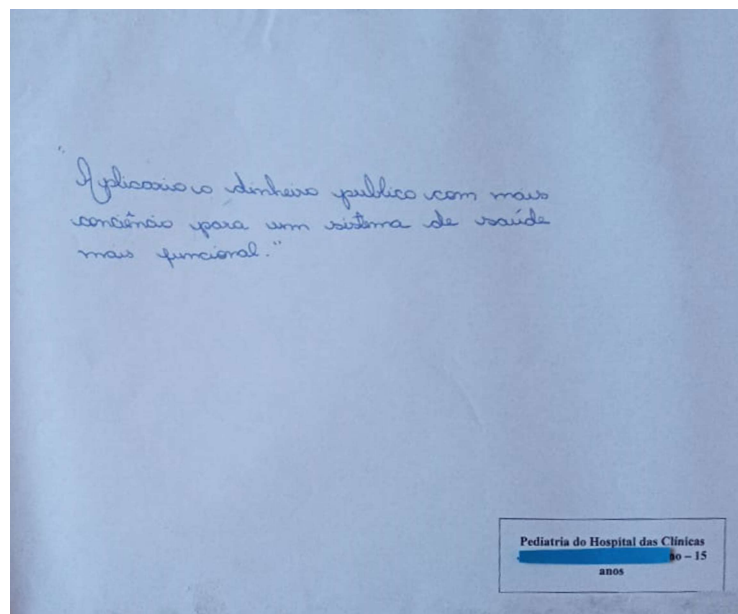 "Aplicaria o dinheiro publico com mais
conciência para um sistema de saúde
mais funcional."
Pediatria do Hospital das Clínicas
o – 15
anos